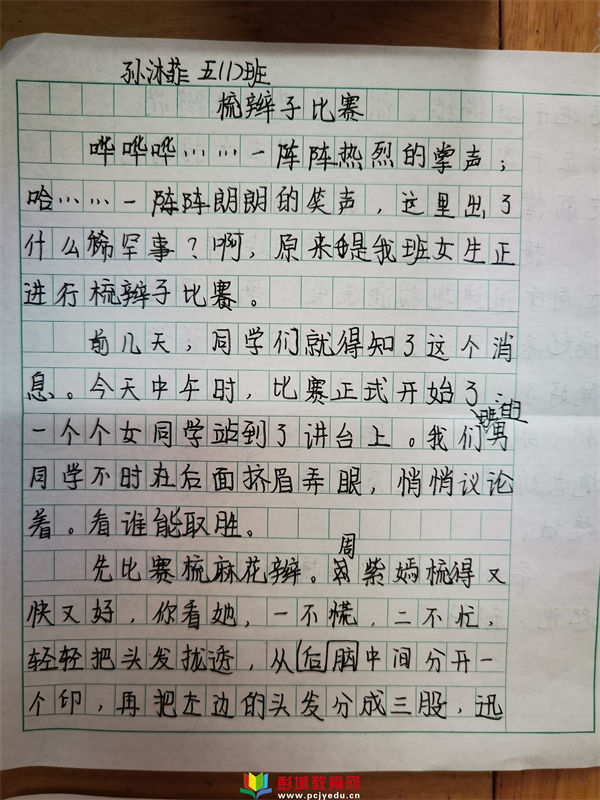 孙沐菲 五(1)班
梳辫子比赛
哗哗哗……一阵阵热烈的掌声；
哈……一阵阵朗朗的笑声，这里出了
什么稀罕事？啊，原来是我班女生正
进行梳辫子比赛。
前几天，同学们就得知了这个消
息。今天中午时，比赛正式开始了：
一个个女同学站到了讲台上。我们班男
同学不时在后面挤眉弄眼，悄悄议论
着。看谁能取胜。
先比赛梳麻花辫。周紫嫣梳得又
快又好，你看她，一不慌，二不忙，
轻轻把头发拢透，从后脑中间分开一
个印，再把左边的头发分成三股，迅
彭城教育网
www.pcjyedu.cn